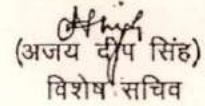 (अजय दीप सिंह)
विशेष सचिव